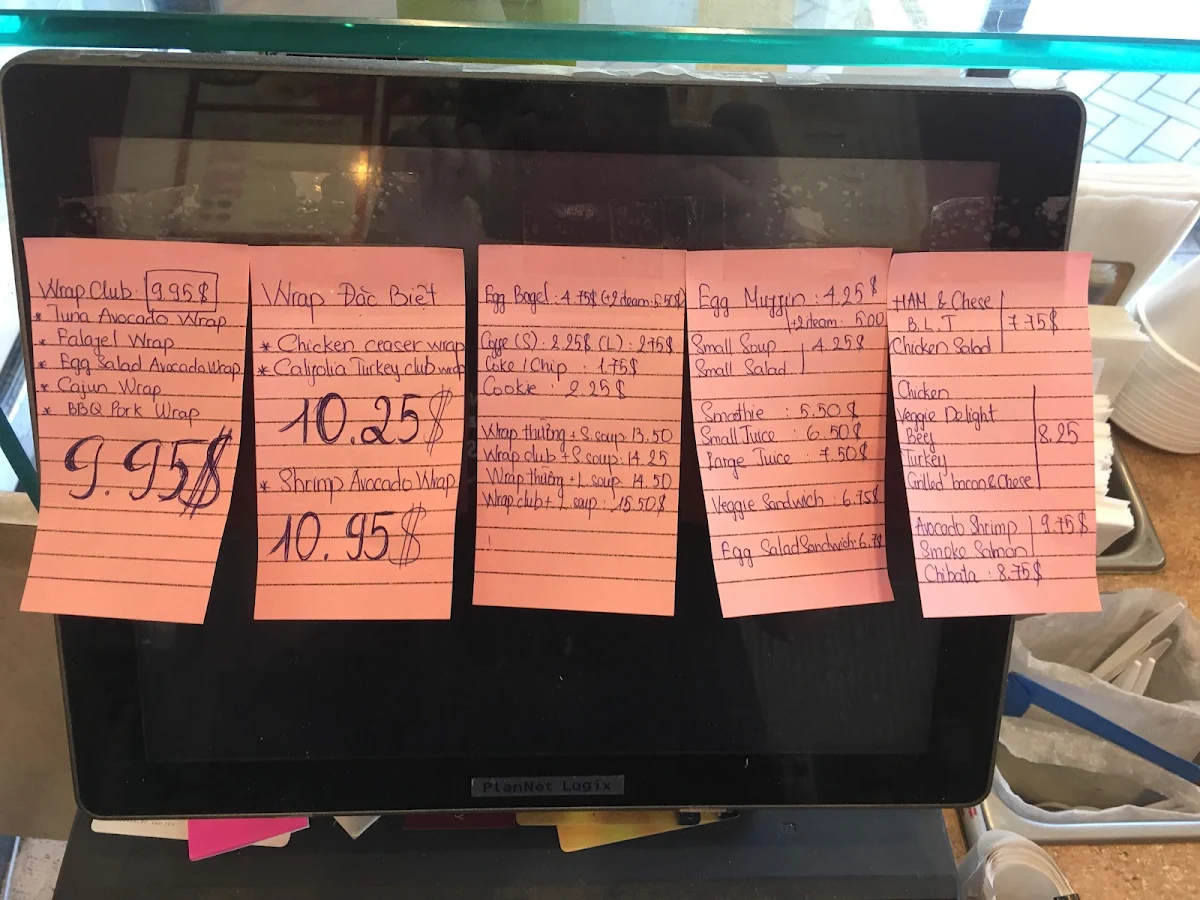 Wrap Club: 9.95$
* Tuna Avocado Wrap
* Falafel Wrap
* Egg Salad Avocado Wrap
* Cajun Wrap
* BBQ Pork Wrap
9.95$
Wrap Đăc Biêt
* Chicken ceaser wrap
* Califolia Turkey club wrap
10.25$
* Shrimp Avocado Wrap
10.95$
Egg Bagel: 4.75$ (+2 deam: 5.50$)
Coffe (S): 2.25$ (L): 2.75$
Coke / Chip : 1.75$
Cookie : 2.25$
Wrap thường + S.soup: 13.50
Wrap club + S.soup: 14.25
Wrap thường + L.soup: 14.50
Wrap club + L.soup: 15.50$
Egg Muffin : 4.25$
+2 deam: 5.00
Small Soup 4.25$
Small Salad
Smothie : 5.50$
Small Juice : 6.50$
Large Juice : 7.50$
Veggie Sandwich : 6.75$
Egg Salad Sandwich: 6.75
HAM & Chese
B.L.T 7.75$
Chicken Salad
Chicken
Veggie Delight
Beef 8.25
Turkey
Grilled bacon & Chese
Avocado Shrimp 9.75$
Smoke Salmon
Chibata : 8.75$
PlanNet Logix